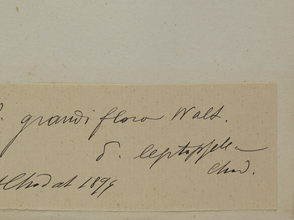 grandiflora Walt.
δ. leptophylla
Chod.
Chodat 1899